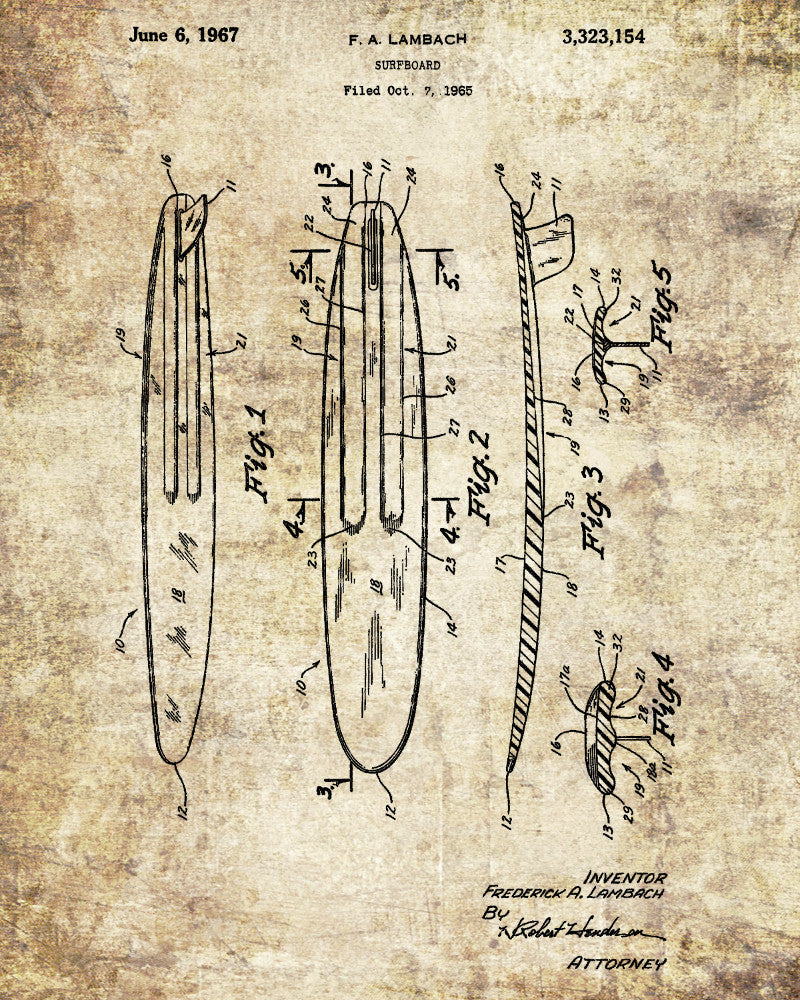 June 6, 1967
F. A. LAMBACH
3,323,154
SURFBOARD
Filed Oct. 7, 1965
16
11
19
21
10
18
12
Fig.1
3.
16
11
24
24
22
5.
5.
27
26
19
21
26
27
4.
4.
23
23
18
14
10
3.
12
Fig.2
16
24
11
28
19
23
17
18
12
Fig.3
14
32
17
21
22
16
19
11
13
29
Fig.5
14
32
17a
21
16
28
18a
11
19
29
13
Fig.4
INVENTOR
FREDERICK A. LAMBACH
By
Robert Henderson
ATTORNEY